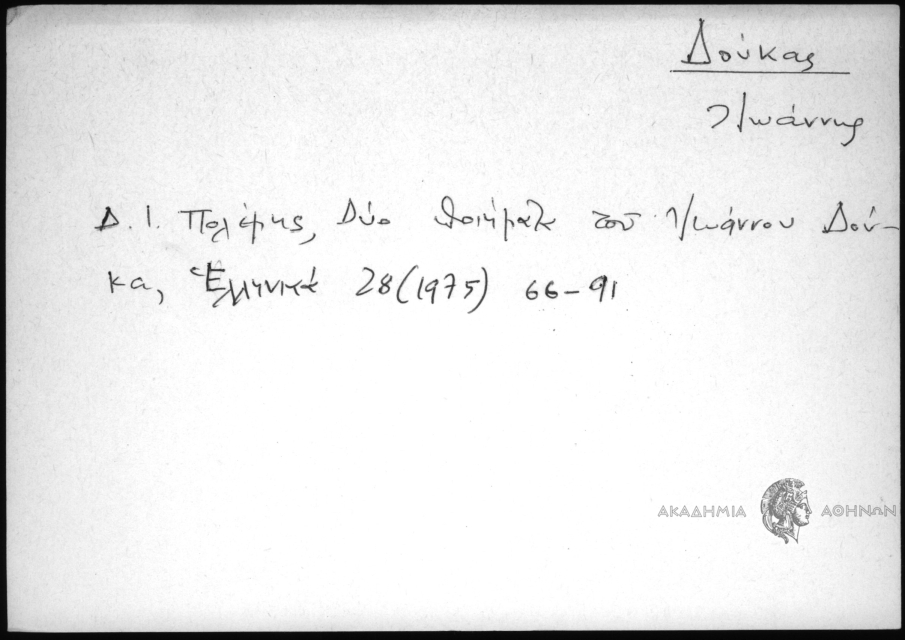 Δούκας
Ἰωάννης
Δ. Ι. Πολέμης, Δύο ποιήματα τοῦ Ἰωάννου Δού-
κα, Ἑλληνικά 28(1975) 66-91
ΑΚΑΔΗΜΙΑ ΑΘΗΝΩΝ